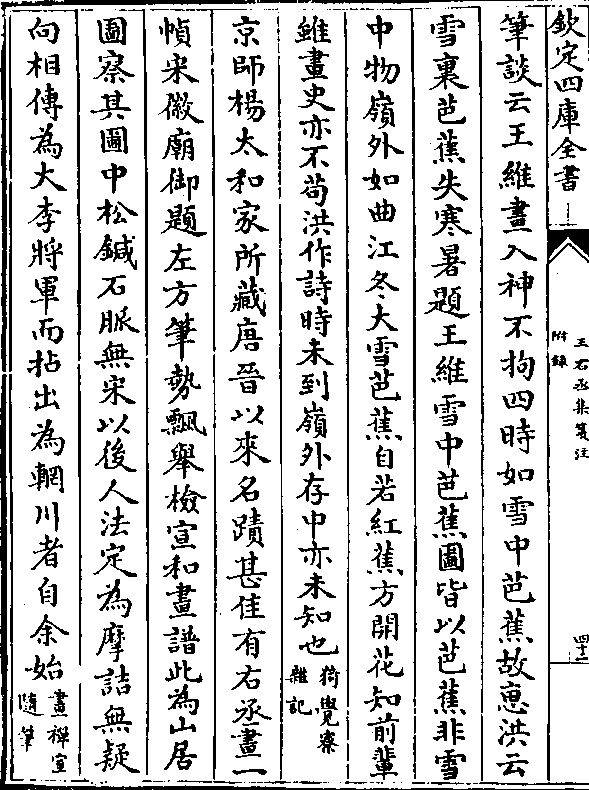 欽定四庫全書
王右丞集箋注
附錄
四十一
筆談云王維畫入神不拘四時如雪中芭蕉故惠洪云
雪裏芭蕉失寒暑題王維雪中芭蕉圖皆以芭蕉非雪
中物嶺外如曲江冬大雪芭蕉自若紅蕉方開花知前輩
雖畫史亦不苟洪作詩時未到嶺外存中亦未知也猗覺寮
雜記
京師楊太和家所藏唐晉以來名蹟甚佳有右丞畫一
幀宋徽廟御題左方筆勢飄舉檢宣和畫譜此為山居
圖察其圖中松鍼石脈無宋以後人法定為摩詰無疑
向相傳為大李將軍而拈出為輞川者自余始畫禪室
隨筆